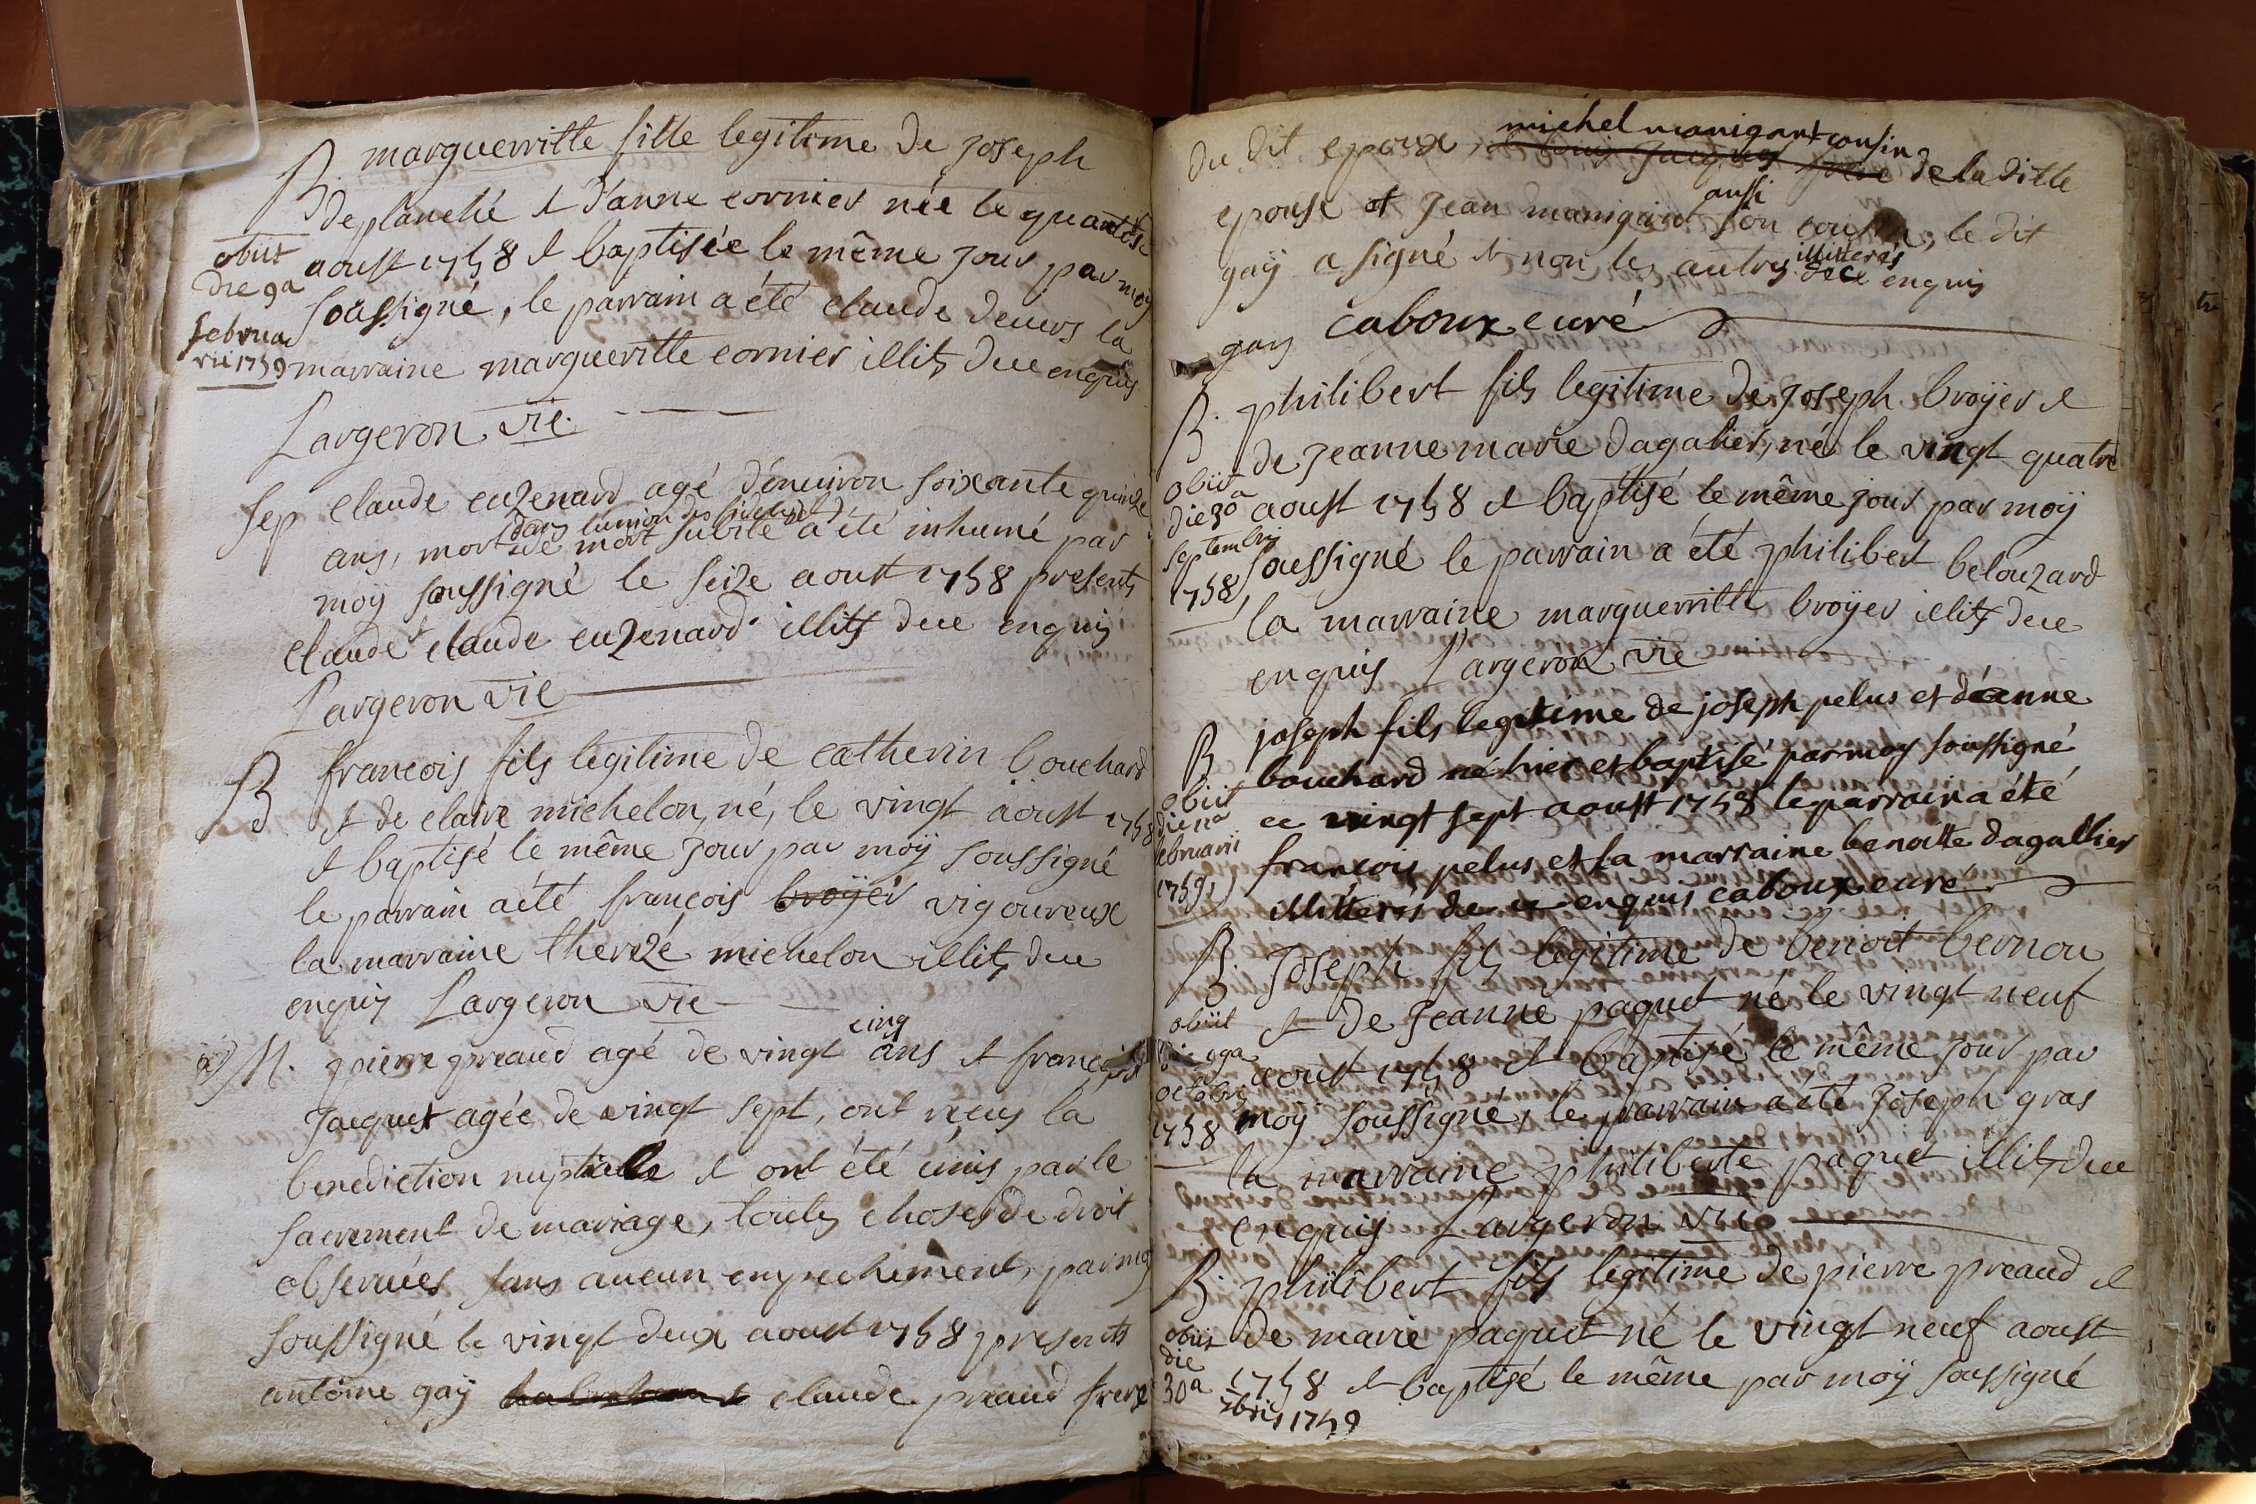 B. marguerritte fille legitime de Joseph
deplanché et d'anne cornier née le quatorse
aoust 1758 et baptisée le même jour par moy
soussigné, le parrain a été claude devers la
marraine marguerritte cornier illits dece enquis
Largeron vic.
obiit
die 9a
februa
rii 1759
Sep claude cuzenard agé d'environ soixante quinze
ans, mort de mort subite a été inhumé par
dans l'union des fideles
moÿ soussigné le seize aoust 1758 presents
claude et claude cuzenard illits dece enquis
Largeron vic
B francois fils legitime de catherin bouchard
et de claire michelon, né, le vingt aoust 1758
et baptisé le même jour par moÿ soussigné
le parrain a été francois broÿer vigoureux
la marraine therezé michelon illits dece
enquis Largeron vic
M. pierre preaud agé de vingt cinq ans et
Jacquet agée de vingt sept, ont recus la
benediction nuptialle et ont été unis par le
sacrement de mariage, touttes choses de droit
observées sans aucun empechement, par moy
soussigné le vingt deux aoust 1758 presents
antoine gaÿ claude preaud frere
du dit epoux, michel manigant cousin de la ditte
epouse et Jean manigand aussi son cousin, le dit
gaÿ a signé et non les autres illitterés dece enquis
gay caboux curé
B. philibert fils legitime de Joseph broÿer et
de Jeanne marie dagalier, né le vingt quatre
aoust 1758 et baptisé le même jour par moÿ
soussigné le parrain a été philibert belouzard
la marraine marguerritte broÿer illits dece
enquis Largeron vic
obiit
die 3a
septembris
1758
B joseph fils legitime de joseph pelus et d'anne
bouchard né hier et baptisé par moy soussigné
ce vingt sept aoust 1758 le parrain a été
francois pelus et la marraine benoitte dagallier
illitterés de ce enquis caboux curé
obiit
die 11a
februarii
1759
B. Joseph fils legitime de benoit bernou
et de Jeanne paquet né le vingt neuf
aoust 1758 et baptisé le même jour par
moÿ soussigné, le parrain a été Joseph gras
la marraine philiberte paquet illits dece
enquis Largeron vic
obiit
die 9a
octobris
1758
B. philibert fils legitime de pierre preaud et
de marie paquet né le vingt neuf aoust
1758 et baptisé le même par moÿ soussigné
obiit
die
30a
7bris 1759